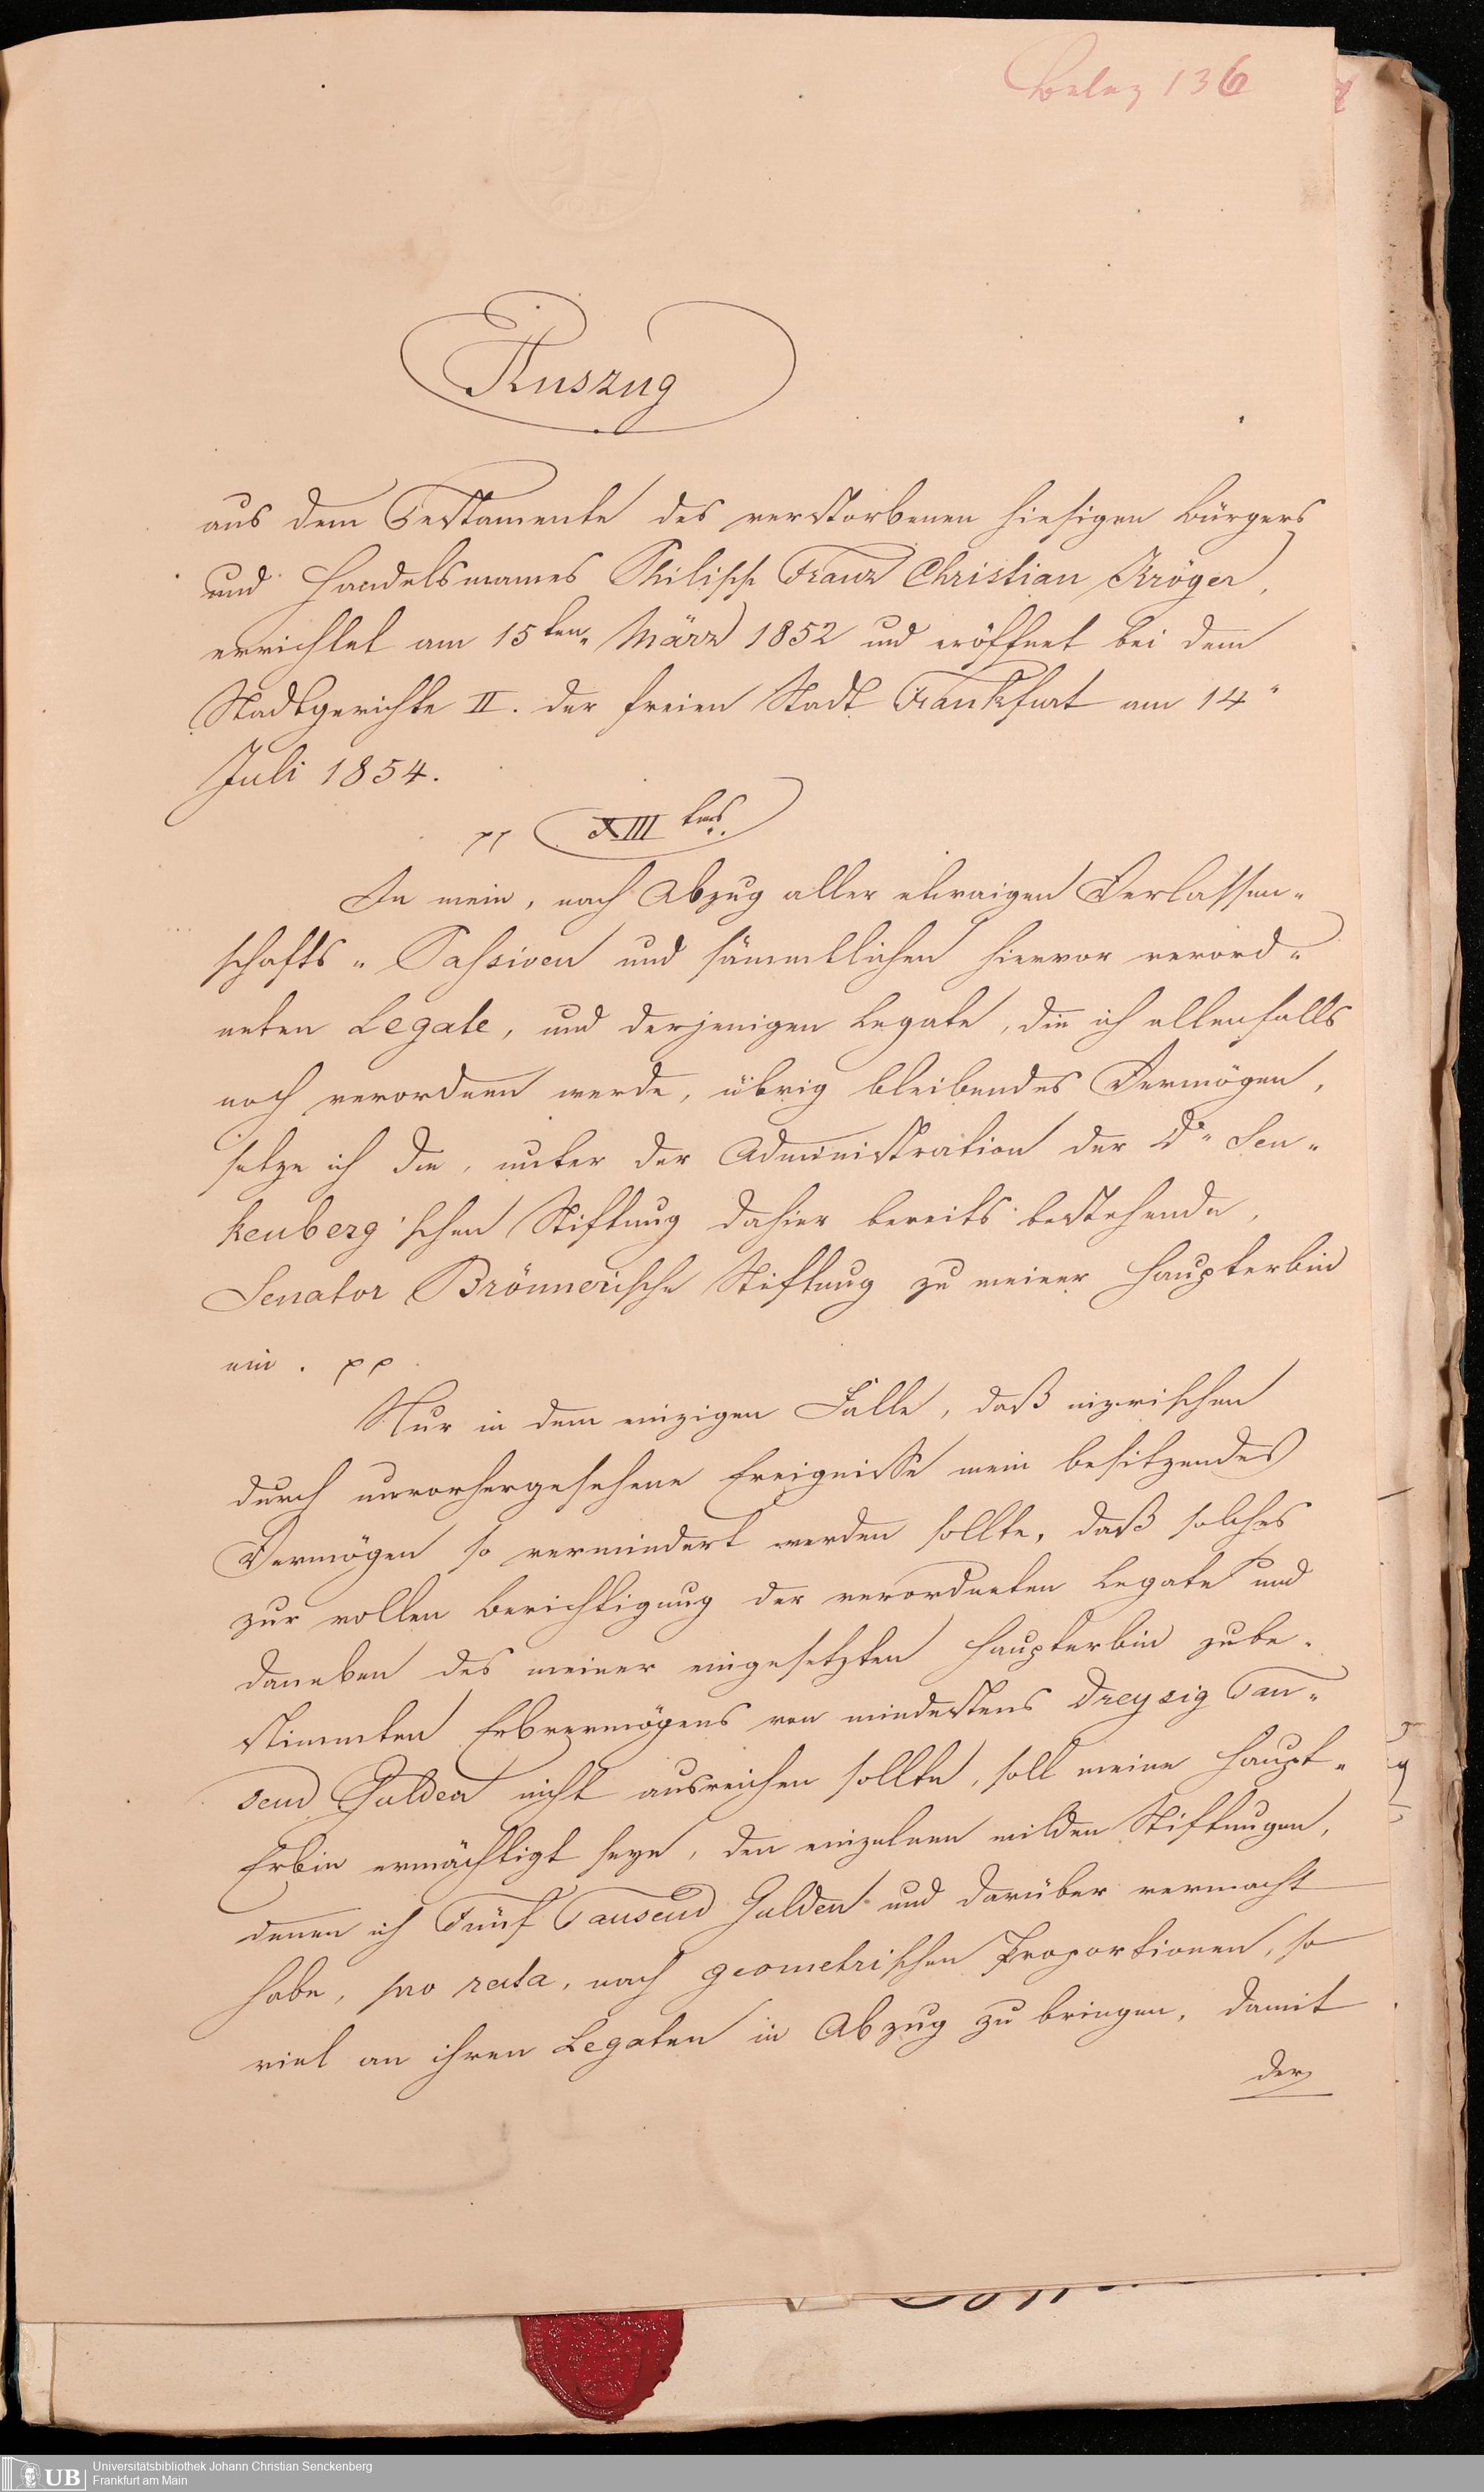 Beleg 136
Auszug
aus dem Testamente des verstorbenen hiesigen Bürgers
und Handelsmannes Philipp Franz Christian Kröger,
errichtet am 15ten März 1852 und eröffnet bei dem
Stadtgerichte II. der freien Stadt Frankfurt am 14"
Juli 1854.
pp XIIItens.
In mein, nach Abzug aller etwaigen Verlassen-
schafts-Passiven und sämmtlichen hiervor verord-
neten Legate, und derjenigen Legate, die ich allenfalls
noch verordnen werde, übrig bleibendes Vermögen,
setze ich die, unter der Administration der Dr. Sen-
kenberg'schen Stiftung dahier bereits bestehende,
Senator Brönnerische Stiftung zu meiner Haupterbin
ein. pp
Nur in dem einzigen Falle, daß inzwischen
durch unvorhergesehene Ereignisse mein besitzendes
Vermögen so vermindert werden sollte, daß solches
zur vollen Berichtigung der verordneten Legate und
daneben des meiner eingesetzten Haupterbin zube-
stimmten Erbvermögens von mindestens Dreysig Tau-
send Gulden nicht ausreichen sollte, soll meine Haupt-
Erbin ermächtigt seyn, den einzelnen milden Stiftungen,
denen ich Fünf Tausend Gulden und darüber vermacht
habe, pro rata, nach geometrischen Proportionen, so
viel an ihren Legaten in Abzug zu bringen, damit
der
UB
Universitätsbibliothek Johann Christian Senckenberg
Frankfurt am Main